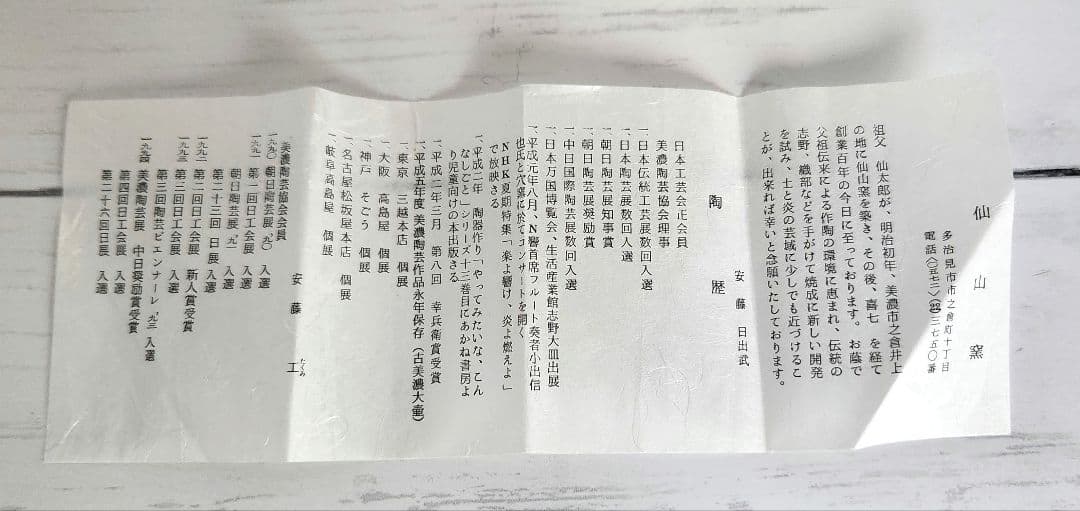 仙山窯
多治見市市之倉町十丁目
電話〈〇五七二〉〈22〉三七五〇番
祖父 仙太郎が、明治初年、美濃市之倉井上
の地に仙山窯を築き、その後、喜七 を経て
創業百年の今日に至っております。お蔭で
父祖伝来による作陶の環境に恵まれ、伝統の
志野、織部などを手がけて焼成に新しい開発
を試み、土と炎の芸域に少しでも近づけるこ
とが、出来れば幸いと念願いたしております。
安藤 日出武
陶歴
日本工芸会正会員
美濃陶芸協会理事
一、日本伝統工芸展数回入選
一、日本陶芸展数回入選
一、朝日陶芸展知事賞
一、朝日陶芸展奨励賞
一、中日国際陶芸展数回入選
一、日本万国博覧会、生活産業館志野大皿出展
一、平成元年八月、N響首席フルート奏者小出信
也氏と穴窯に於てコンサートを開く
NHK夏期特集「楽よ響け、炎よ燃えよ」
で放映さる
一、平成二年 陶器作り「やってみたいな、こん
なしごと」シリーズ十三巻目にあかね書房よ
り児童向けの本出版さる
一、平成二年三月 第八回 幸兵衛賞受賞
一、平成五年度 美濃陶芸作品永年保存(古美濃大壷)
一、東京 三越本店 個展
一、大阪 高島屋 個展
一、神戸 そごう 個展
一、名古屋松坂屋本店 個展
一、岐阜高島屋 個展
安藤 工
たくみ
美濃陶芸協会会員
一九九〇 朝日陶芸展'九〇 入選
一九九一 第一回日工会展 入選
朝日陶芸展'九一 入選
第二十三回 日展 入選
一九九二 第二回日工会展 新人賞受賞
一九九三 第三回日工会展 入選
第三回陶芸ビエンナーレ'九三 入選
一九九四 美濃陶芸展 中日奨励賞受賞
第四回日工会展 入選
第二十六回日展 入選